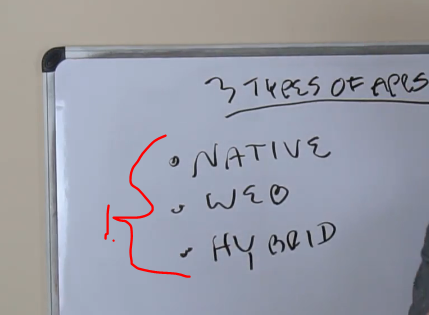 3 TYPES OF APPS
• NATIVE
• WEB
• HYBRID
!